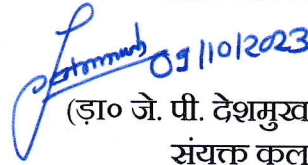 09/10/2023
(ड़ा० जे. पी. देशमुख
संयक्त कल